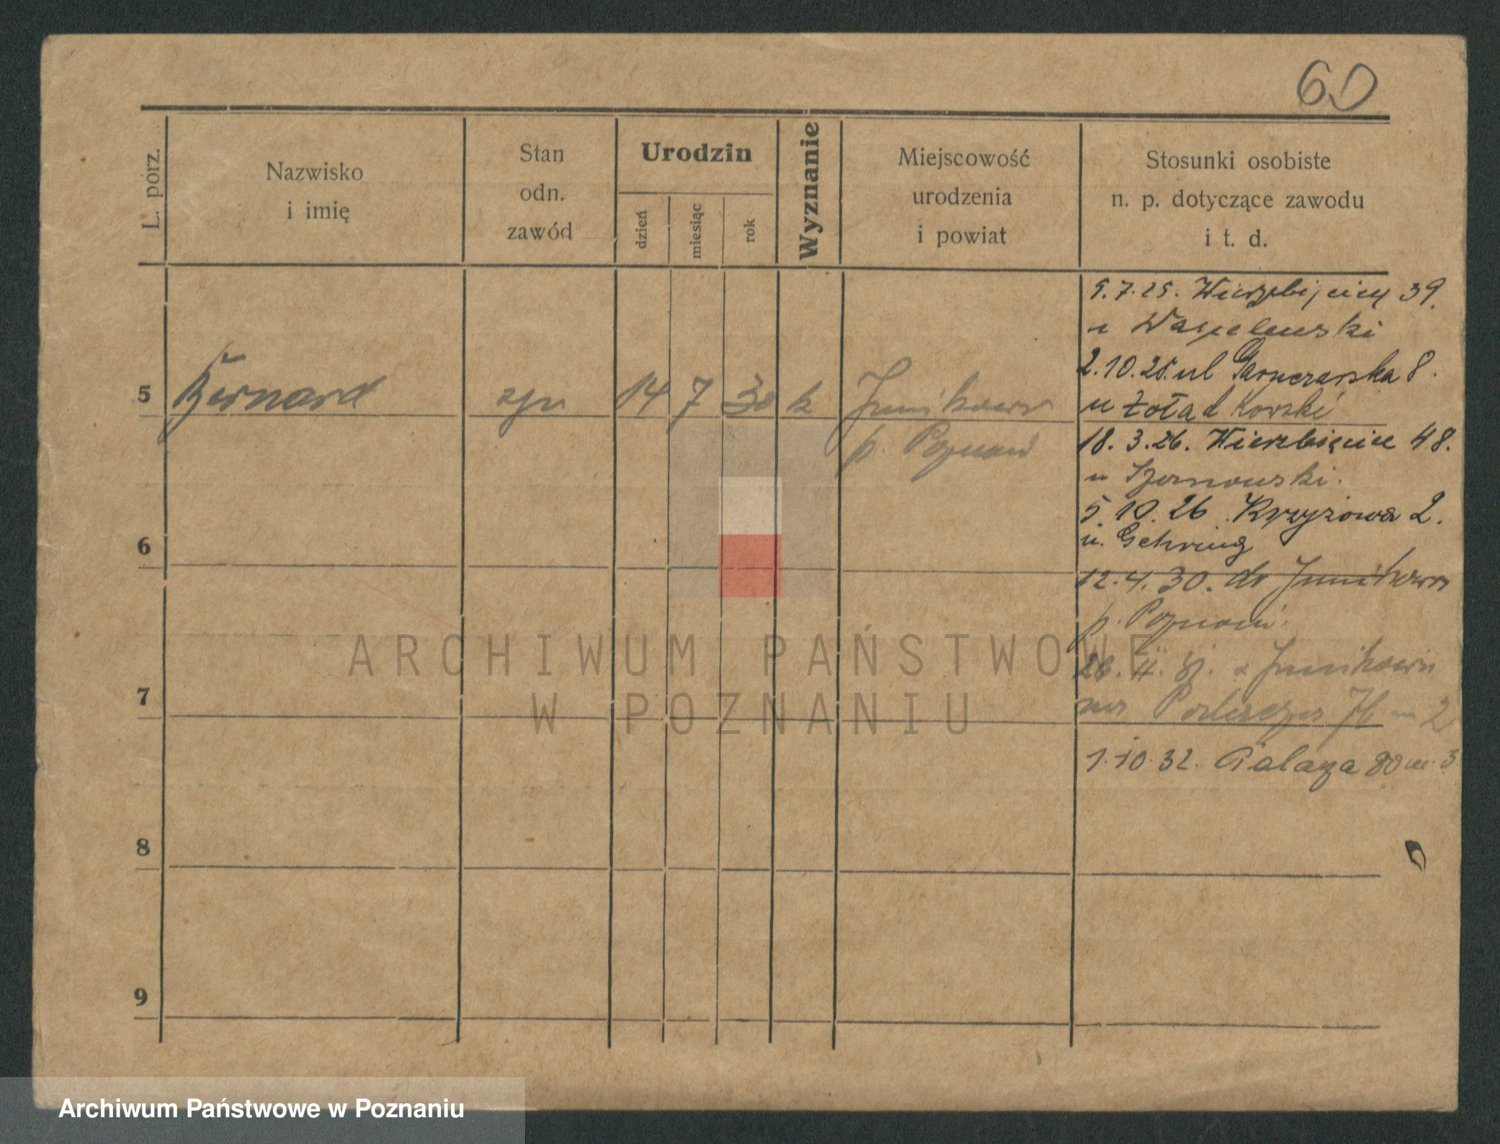 60
L. porz.
Nazwisko
i imię
Stan
odn.
zawód
Urodzin
dzień
miesiąc
rok
Wyznanie
Miejscowość
urodzenia
i powiat
Stosunki osobiste
n. p. dotyczące zawodu
i t. d.
5.7.25. Wierzbięcice 39.
u
2.10.25. ul Garncarska 8.
u Żoładkowski
5 Bernard syn 14 7 30 k Junikowo
p. Poznań
18.3.26. Wierzbięcice 48.
u
5.10.26. Krzyżowa 2.
u. Gehring
6
12.4.30. do Junikowa
p. Poznań.
ARCHIWUM PAŃSTWOWE
W POZNANIU
z Junikowa
na 76 m 2
7
1.10.32. Palacza 80 m. 3
8
9
Archiwum Państwowe w Poznaniu